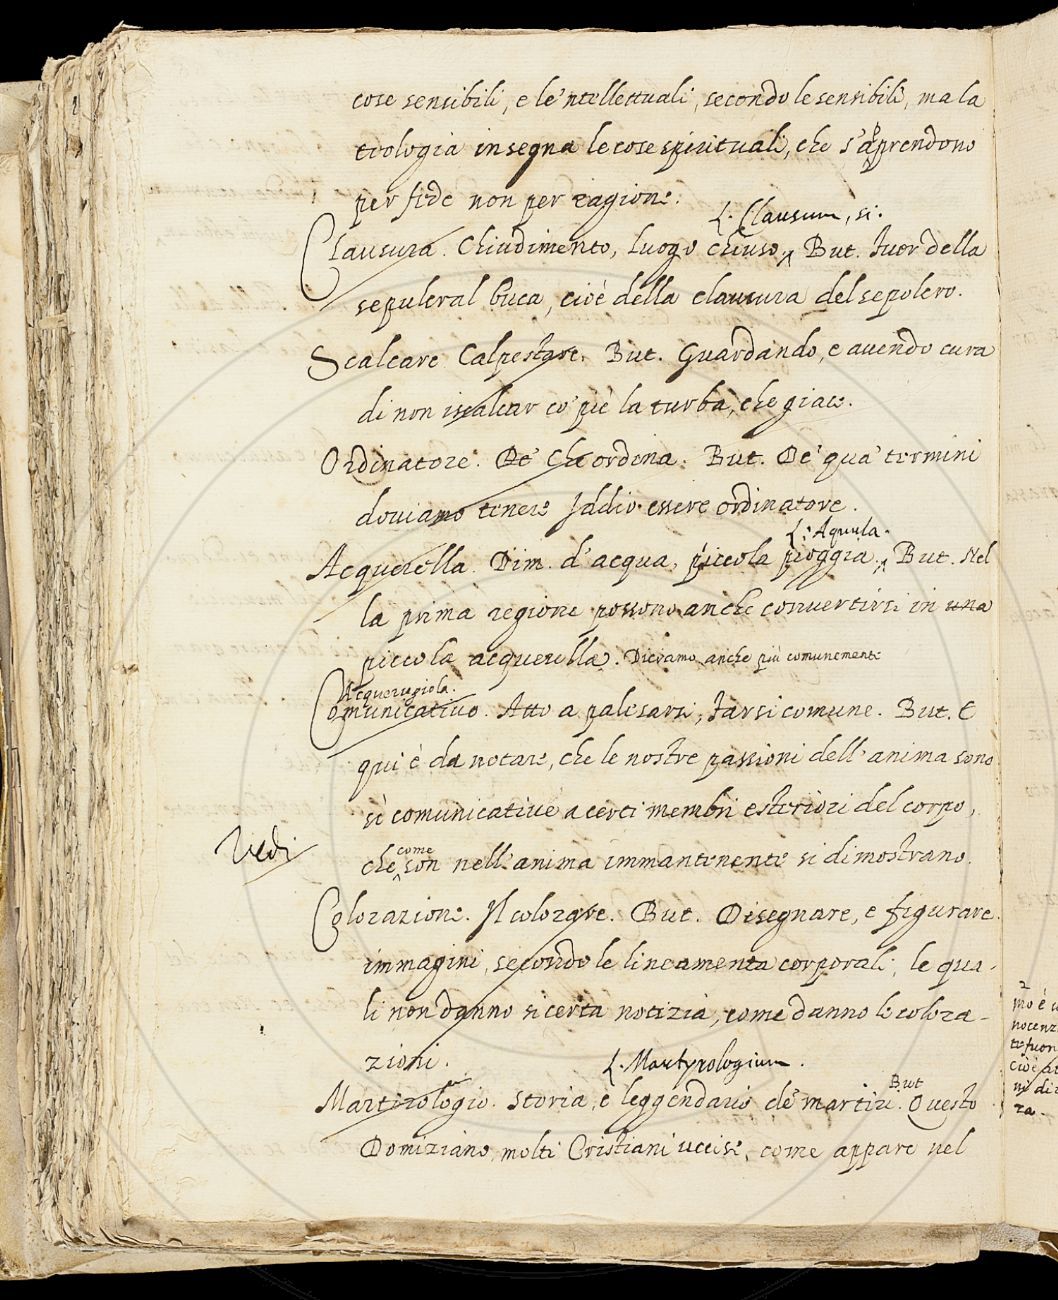 cose sensibili, e le'ntellettuali, secondo le sensibili, ma la
teologia insegna le cose spirituali, che s'apprendono
per fede non per ragione.
L. Clausum, si.
Clausura. Chiudimento, luogo chiuso, But. Fuor della
sepulcral buca, cioè della clausura del sepolcro.
Scalcare Calpestare. But. Guardando, e avendo cura
di non iscalcar co' piè la turba, che giace.
Ordinatore. Che ordina. But. De' qua' termini
doviamo tenere Iddio essere ordinatore.
L. Aquula.
Acquerella. Dim. d'acqua, piccola pioggia. But. Nel
la prima regione possono anche convertirsi in una
piccola acquerella. Diciamo anche più comunemente
Acquerugiola.
Comunicativo. Atto a palesarsi, farsi comune. But. E
qui è da notare, che le nostre passioni dell'anima sono
sì comunicative a certi membri esteriori del corpo,
Vedi
come
che son nell'anima immantenente si dimostrano.
Colorazione. Il colorare. But. Disegnare, e figurare
immagini, secondo le lineamenta corporali, le qua-
li non danno sì certa notizia, come danno le colora-
zioni.
L. Martyrologium.
But
Martirologio. Storia, e leggendario de' martiri. Questo
Domiziano, molti Cristiani uccise, come appare nel